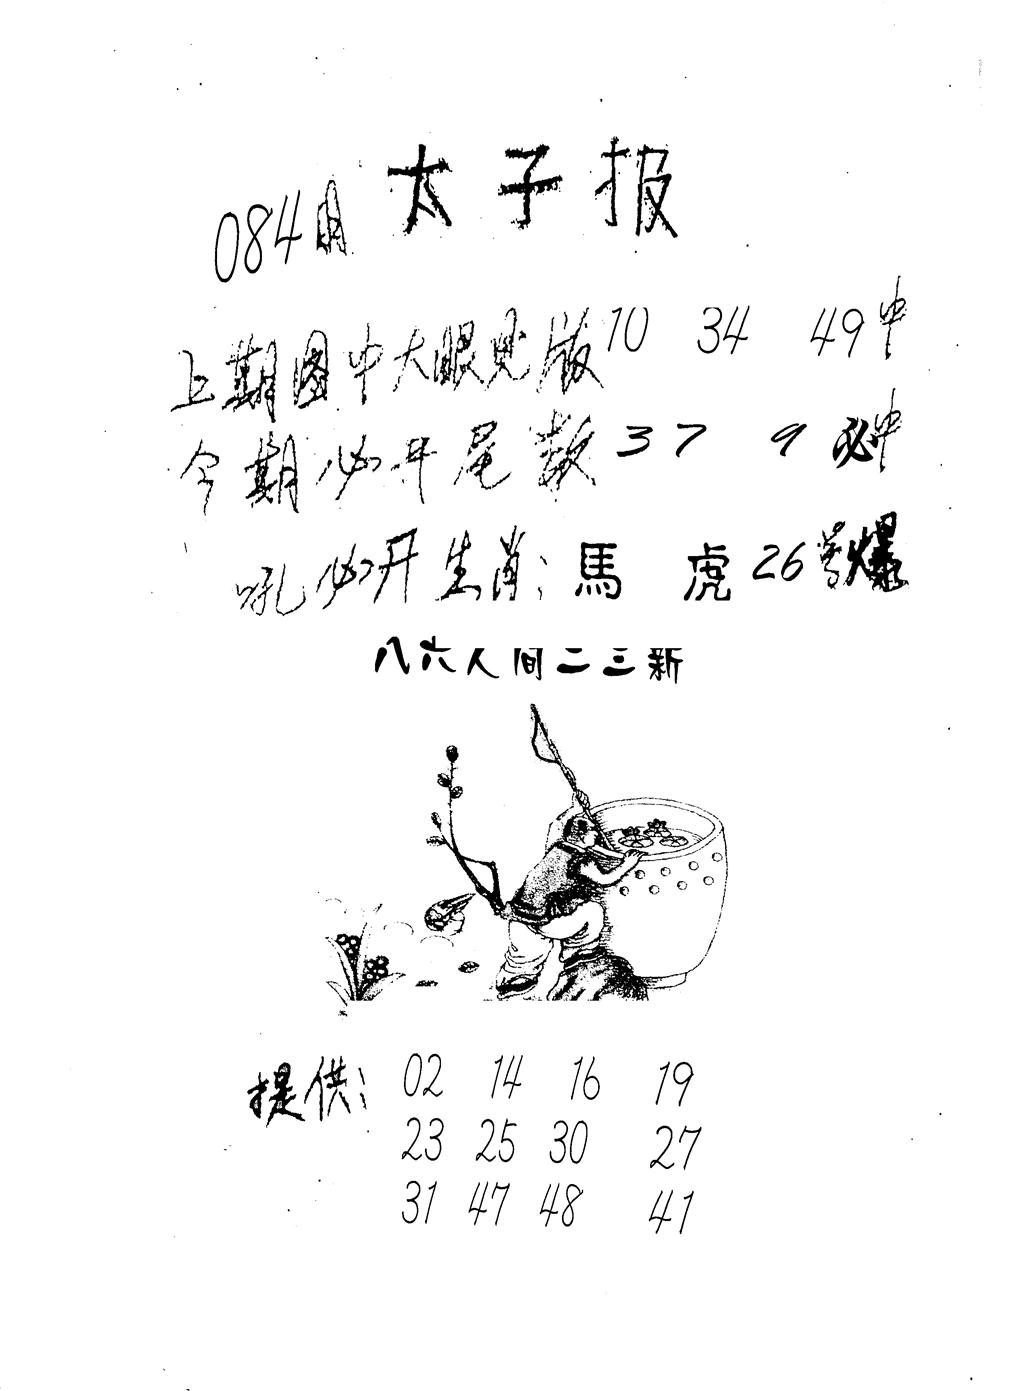 太子报
084期
上期图中大眼见版10 34 49中
今期必开尾数37 9必中
吼必开生肖:馬 虎26号爆
八六人间二三新
提供: 02 14 16 19
23 25 30 27
31 47 48 41